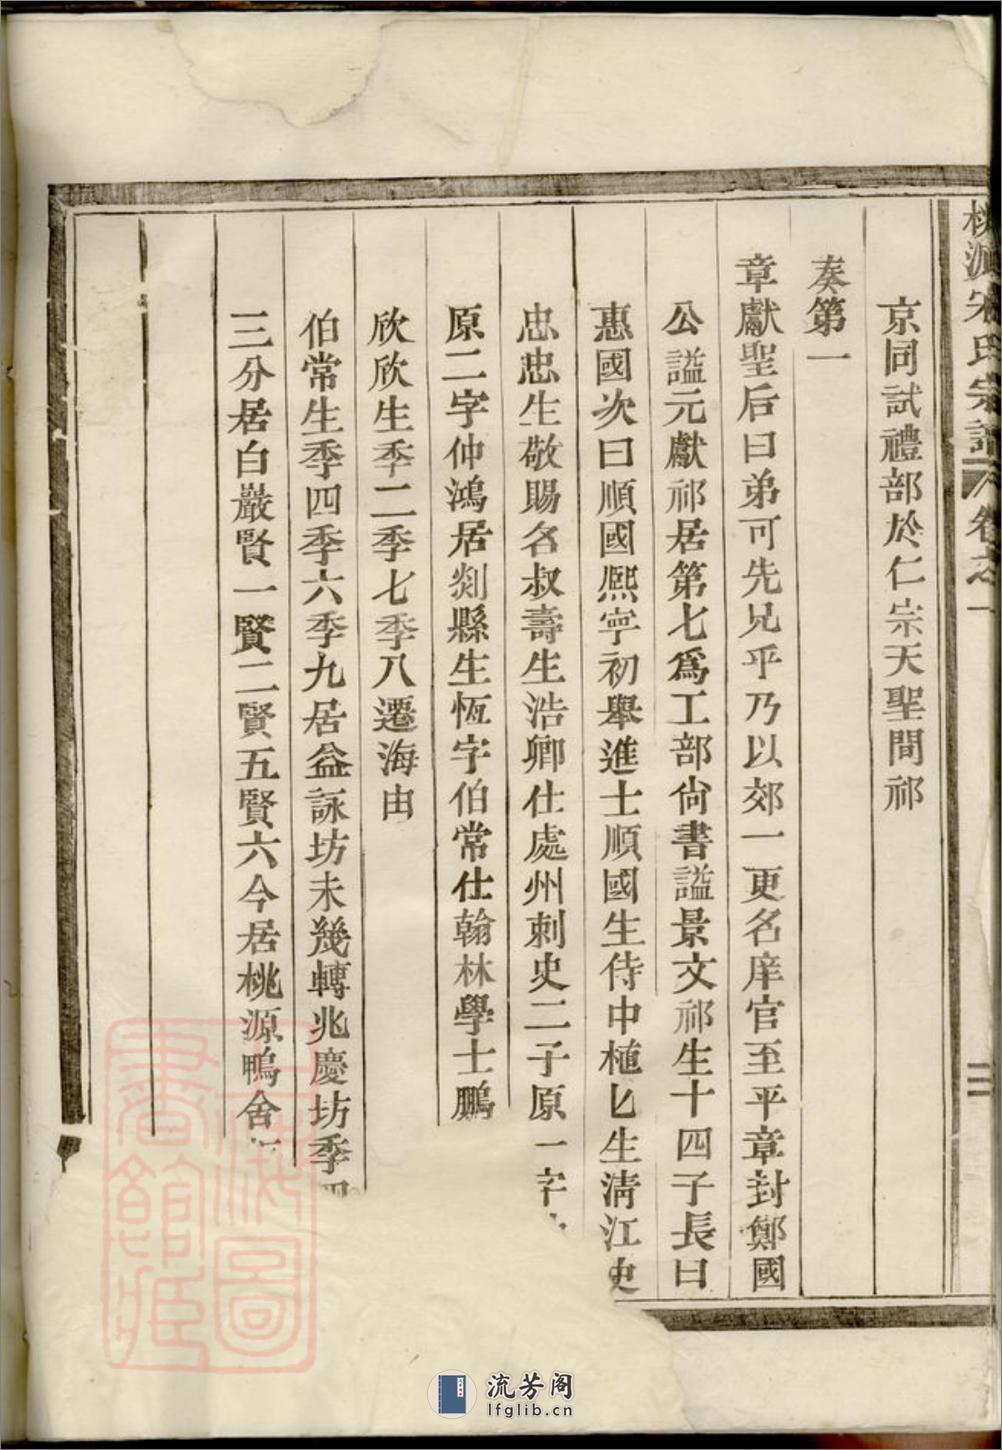 桃源宋氏宗譜 卷之一
二
京同試禮部於仁宗天聖間祁
奏第一
章獻聖后曰弟可先兄乎乃以郊一更名庠官至平章封鄭國
公諡元獻祁居第七為工部尙書諡景文祁生十四子長曰
惠國次曰順國熈寧初舉進士順國生侍中植匕生淸江史
忠忠生敬賜名叔壽生浩卿仕處州刺史二子原一字
原二字仲鴻居剡縣生恆字伯常仕翰林學士鵬
欣欣生季二季七季八遷海由
伯常生季四季六季九居益詠坊未幾轉兆慶坊季四
三分居白巖賢一賢二賢五賢六今居桃源鴨舍
上海圖書館藏
流芳阁
lfglib.cn